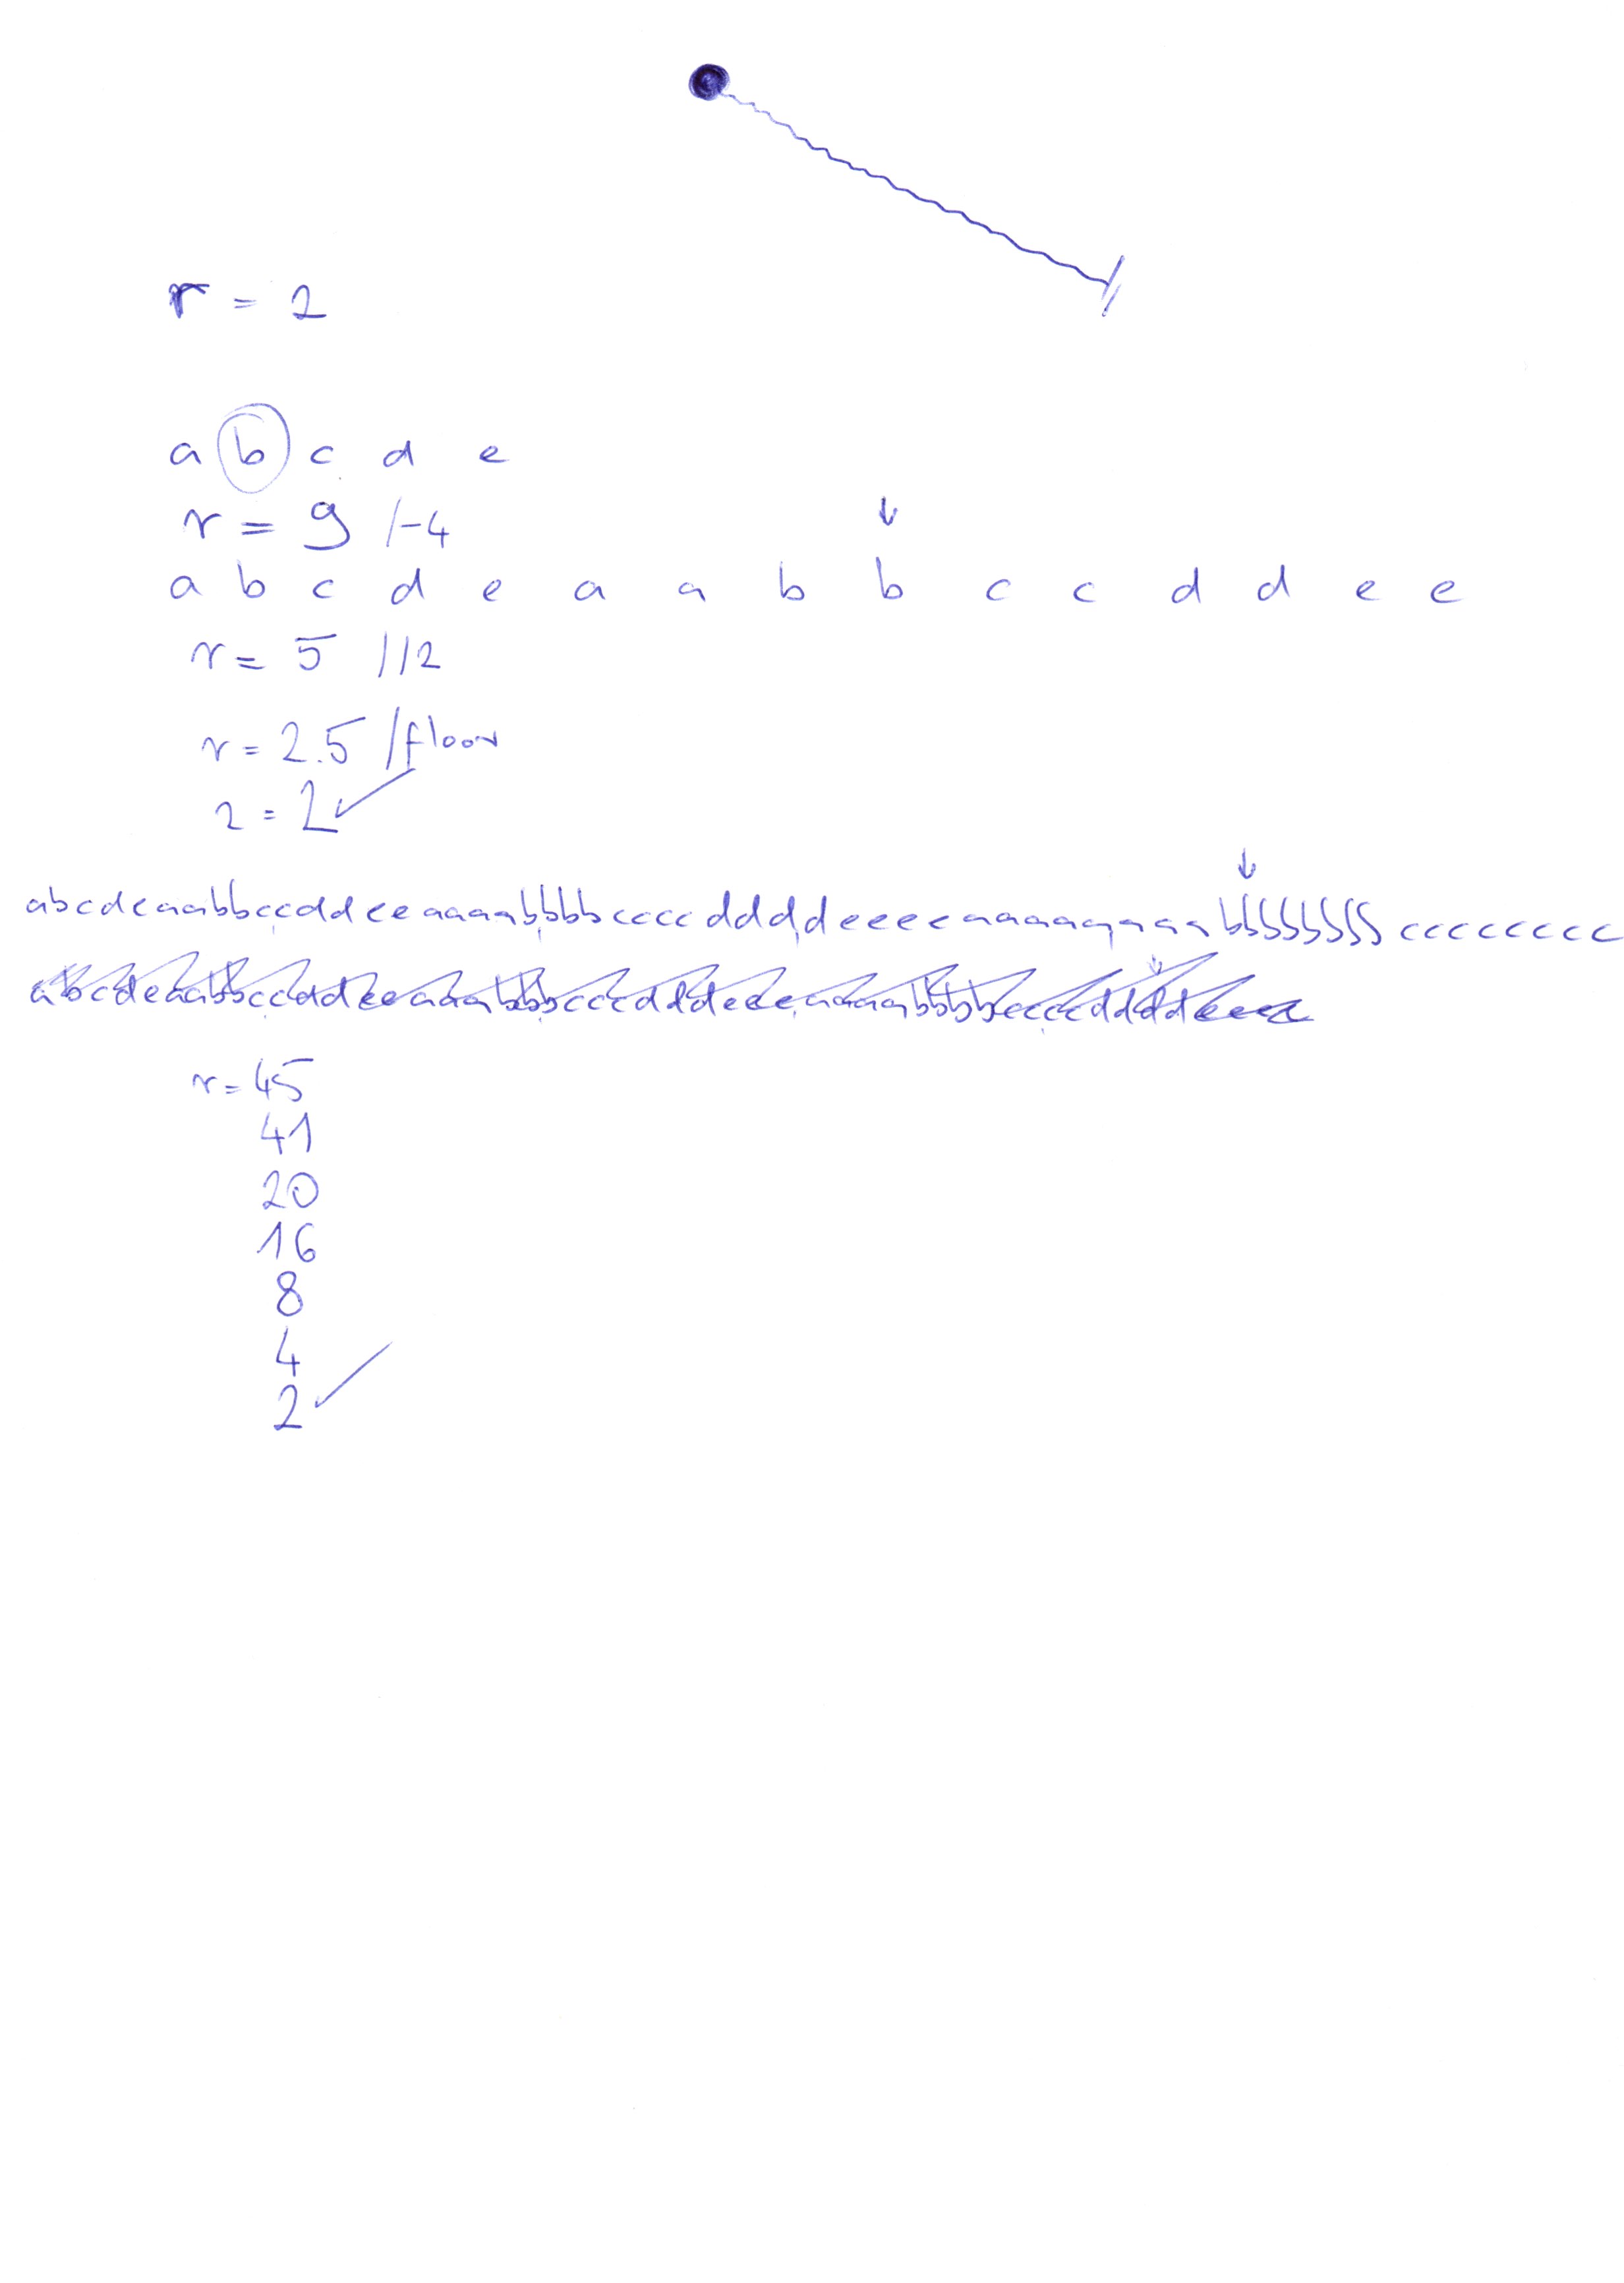 r = 2
a b c d e
r = 9 /-4
↓
a b c d e a a b b c c d d e e
r = 5 //2
r = 2.5 /floor
2 = 2 ✓
↓
abcdeaabbccddeeaaaabbbbccccddddeeeeaaaaaaaabbbbbbbbcccccccc
abcdeaabbccddeeaaabbbcccdddeeeaaaabbbbccccddddeeee
r = 45
41
20
16
8
4
2 ✓